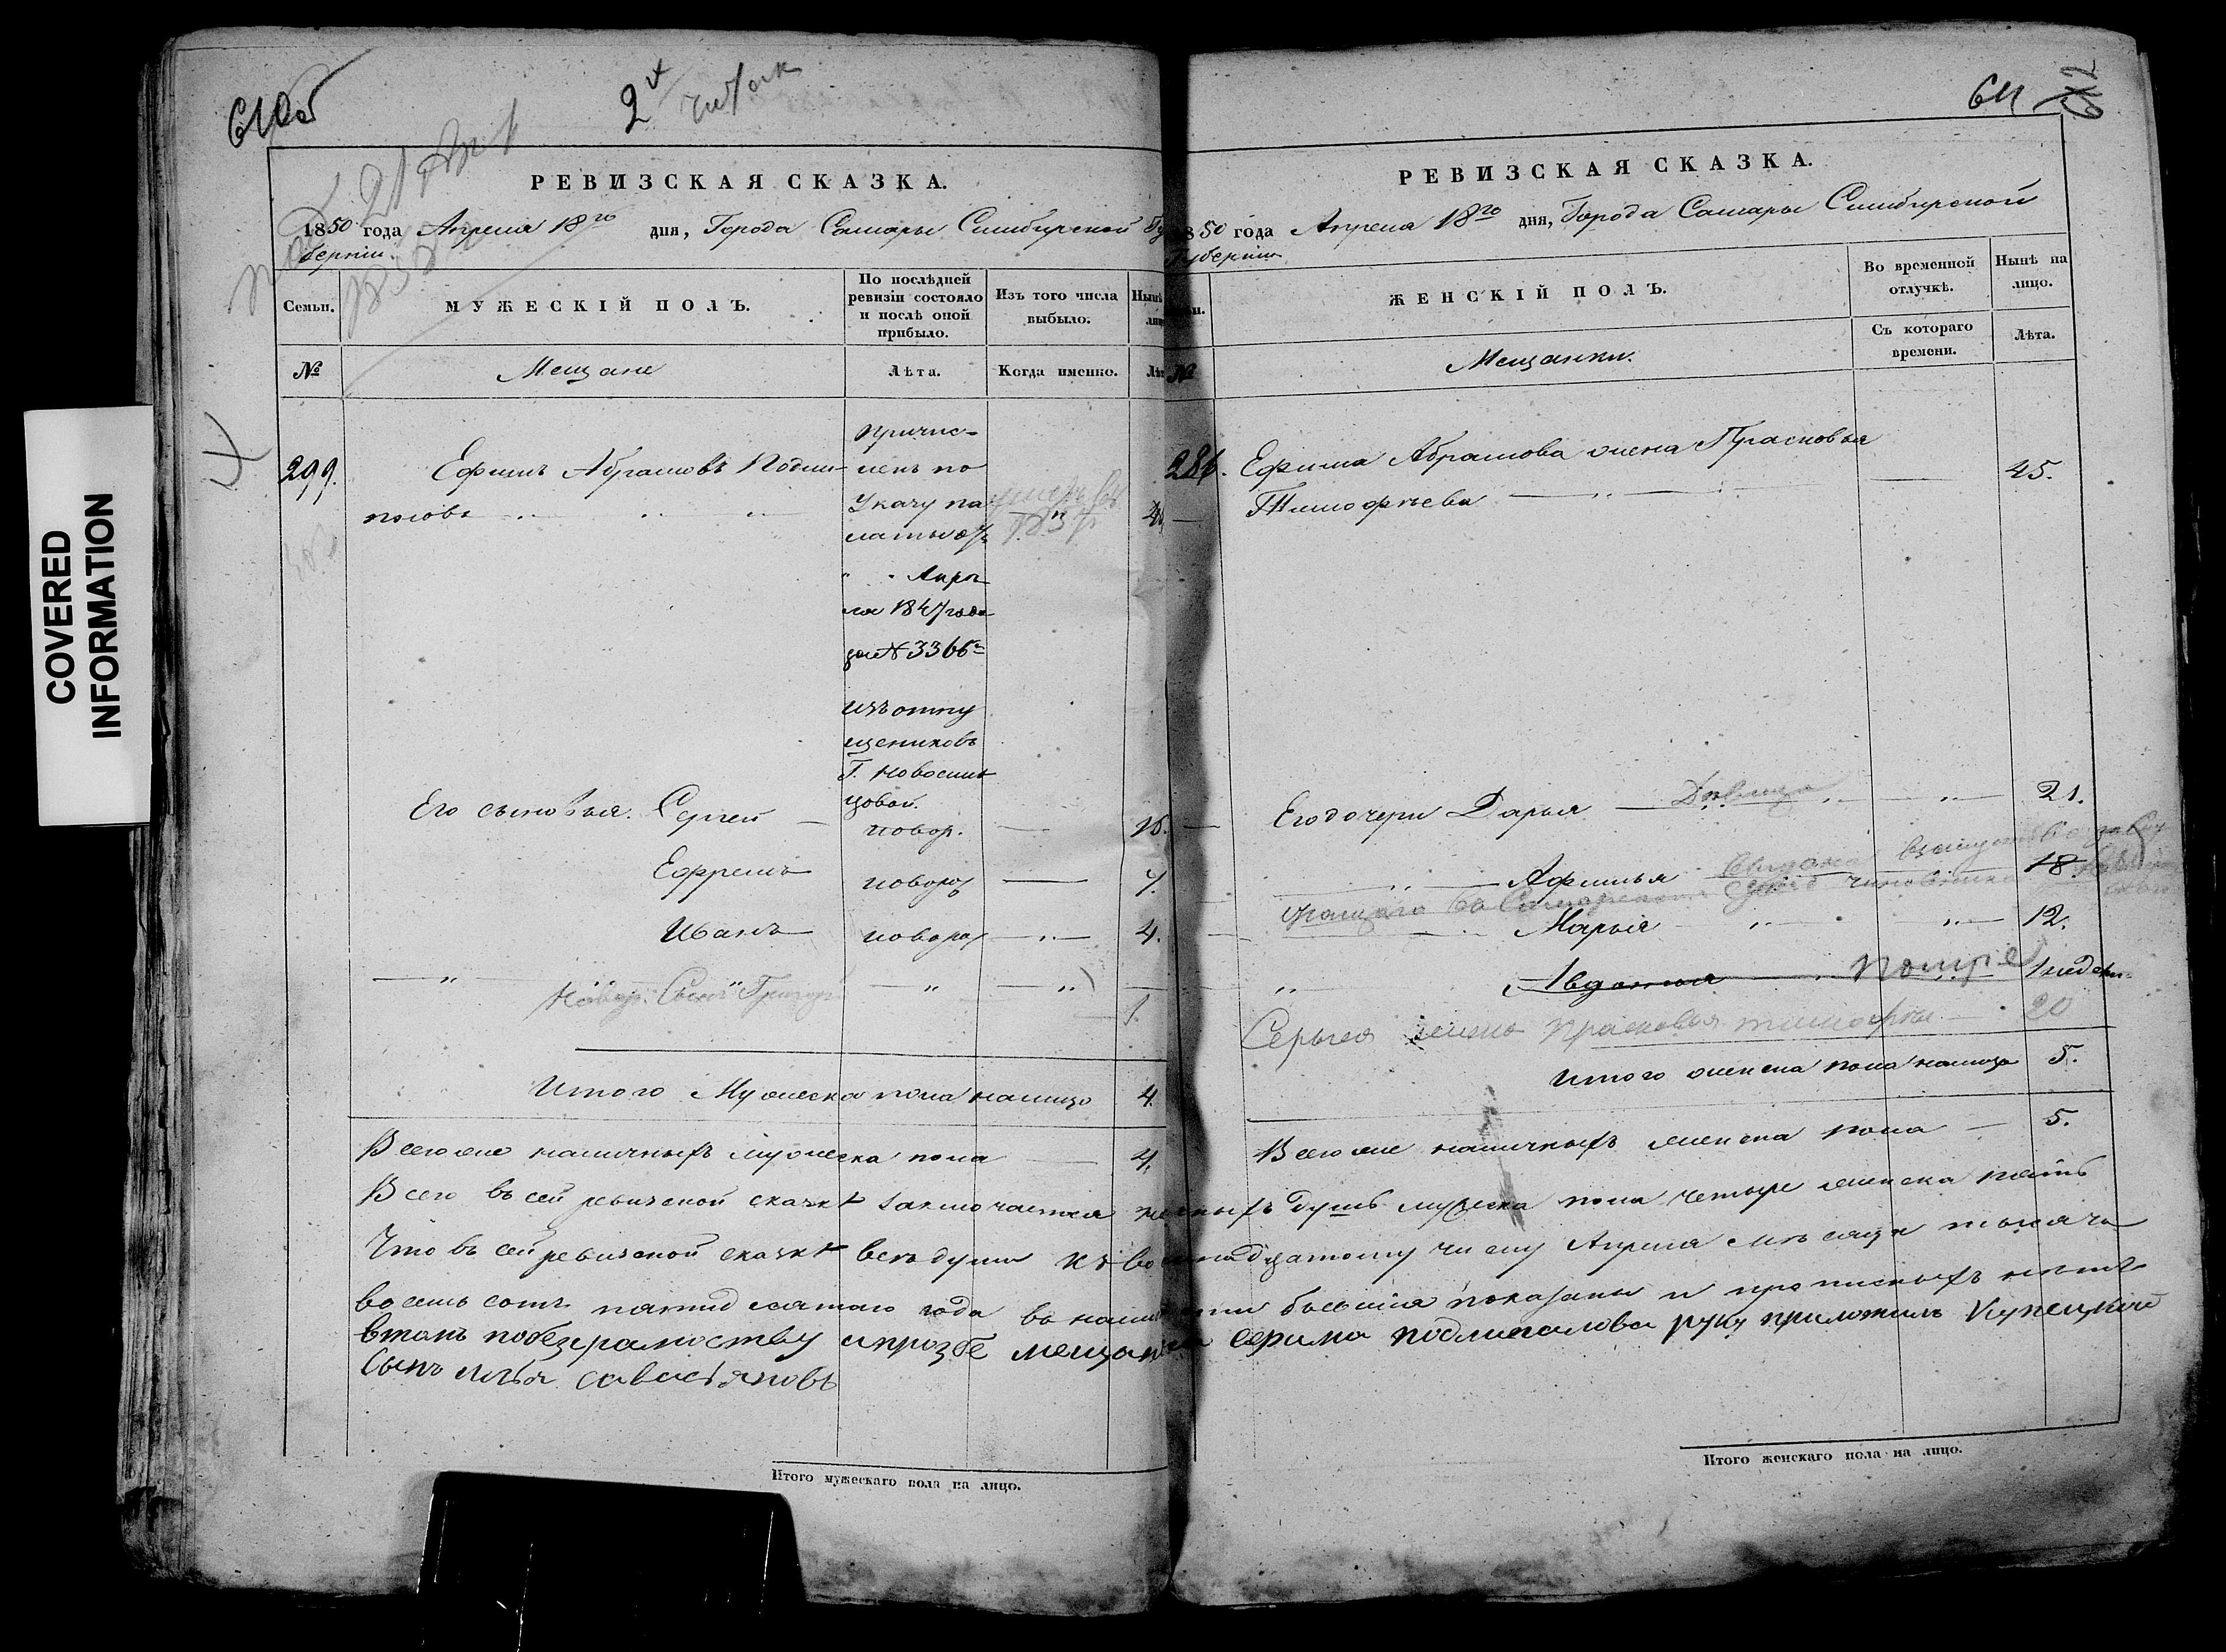 COVERED
INFORMATION
610об
2й
РЕВИЗСКАЯ СКАЗКА.
1850 года Апреля 18го дня, Города Самары Симбирской Гу
берніи.
Семьи.
МУЖЕСКІЙ ПОЛЪ.
По послѣдней
ревизіи состояло
и послѣ оной
прибыло.
Изъ того числа
выбыло.
Нынѣ
лицо
№
Мещане
Лѣта.
Когда именно.
Лѣт
299.
Ефимъ Абрамовъ Подли-
паловъ
причис-
ленъ по
Указу па
латы отъ
Апре
ля 1847 года
за № 3366м
изъ отпу
щениковъ
Г. Новосиль
цовой.
умеръ въ
Его сыновья. Сергей
новор.
16.
Ефремъ
новорож
7.
Иванъ
новорож
4.
Новор. Сынъ Григор
1.
Итого Мужеска пола налицо 4.
Всего же наличныхъ мужеска пола 4.
611
612
РЕВИЗСКАЯ СКАЗКА.
1850 года Апреля 18го дня, Города Самары Симбирской
Губерніи
ЖЕНСКІЙ ПОЛЪ.
Во временной
отлучкѣ.
Нынѣ на
лицо.
№
Мещанки.
Съ котораго
времени.
Лѣта.
286. Ефима Абрамова жена Прасковья
Тимофѣева
45.
Его дочери Дарья Девица 21.
Афимья 18.
Марья 12.
Авдотья Помре 1 недели
Сергея жена Прасковья Тимофее 20
Итого женска пола налицо 5.
Всего же наличныхъ женска пола 5.
Всего въ сей ревизской сказкѣ заключается наличныхъ душъ мужеска пола четыре женска пять
Что въ сей ревизской сказкѣ все души къ восемнадцатому числу Апреля месяца тысяча
восемь сотъ пятидесятаго года въ наличности бывшія показаны и прописныхъ нетъ
втомъ побезграмотству ипрозбе мещанина ефима подлипалова руку приложилъ Купецкой
Сынъ илья савостьяновъ
Итого мужескаго пола на лицо.
Итого женскаго пола на лицо.